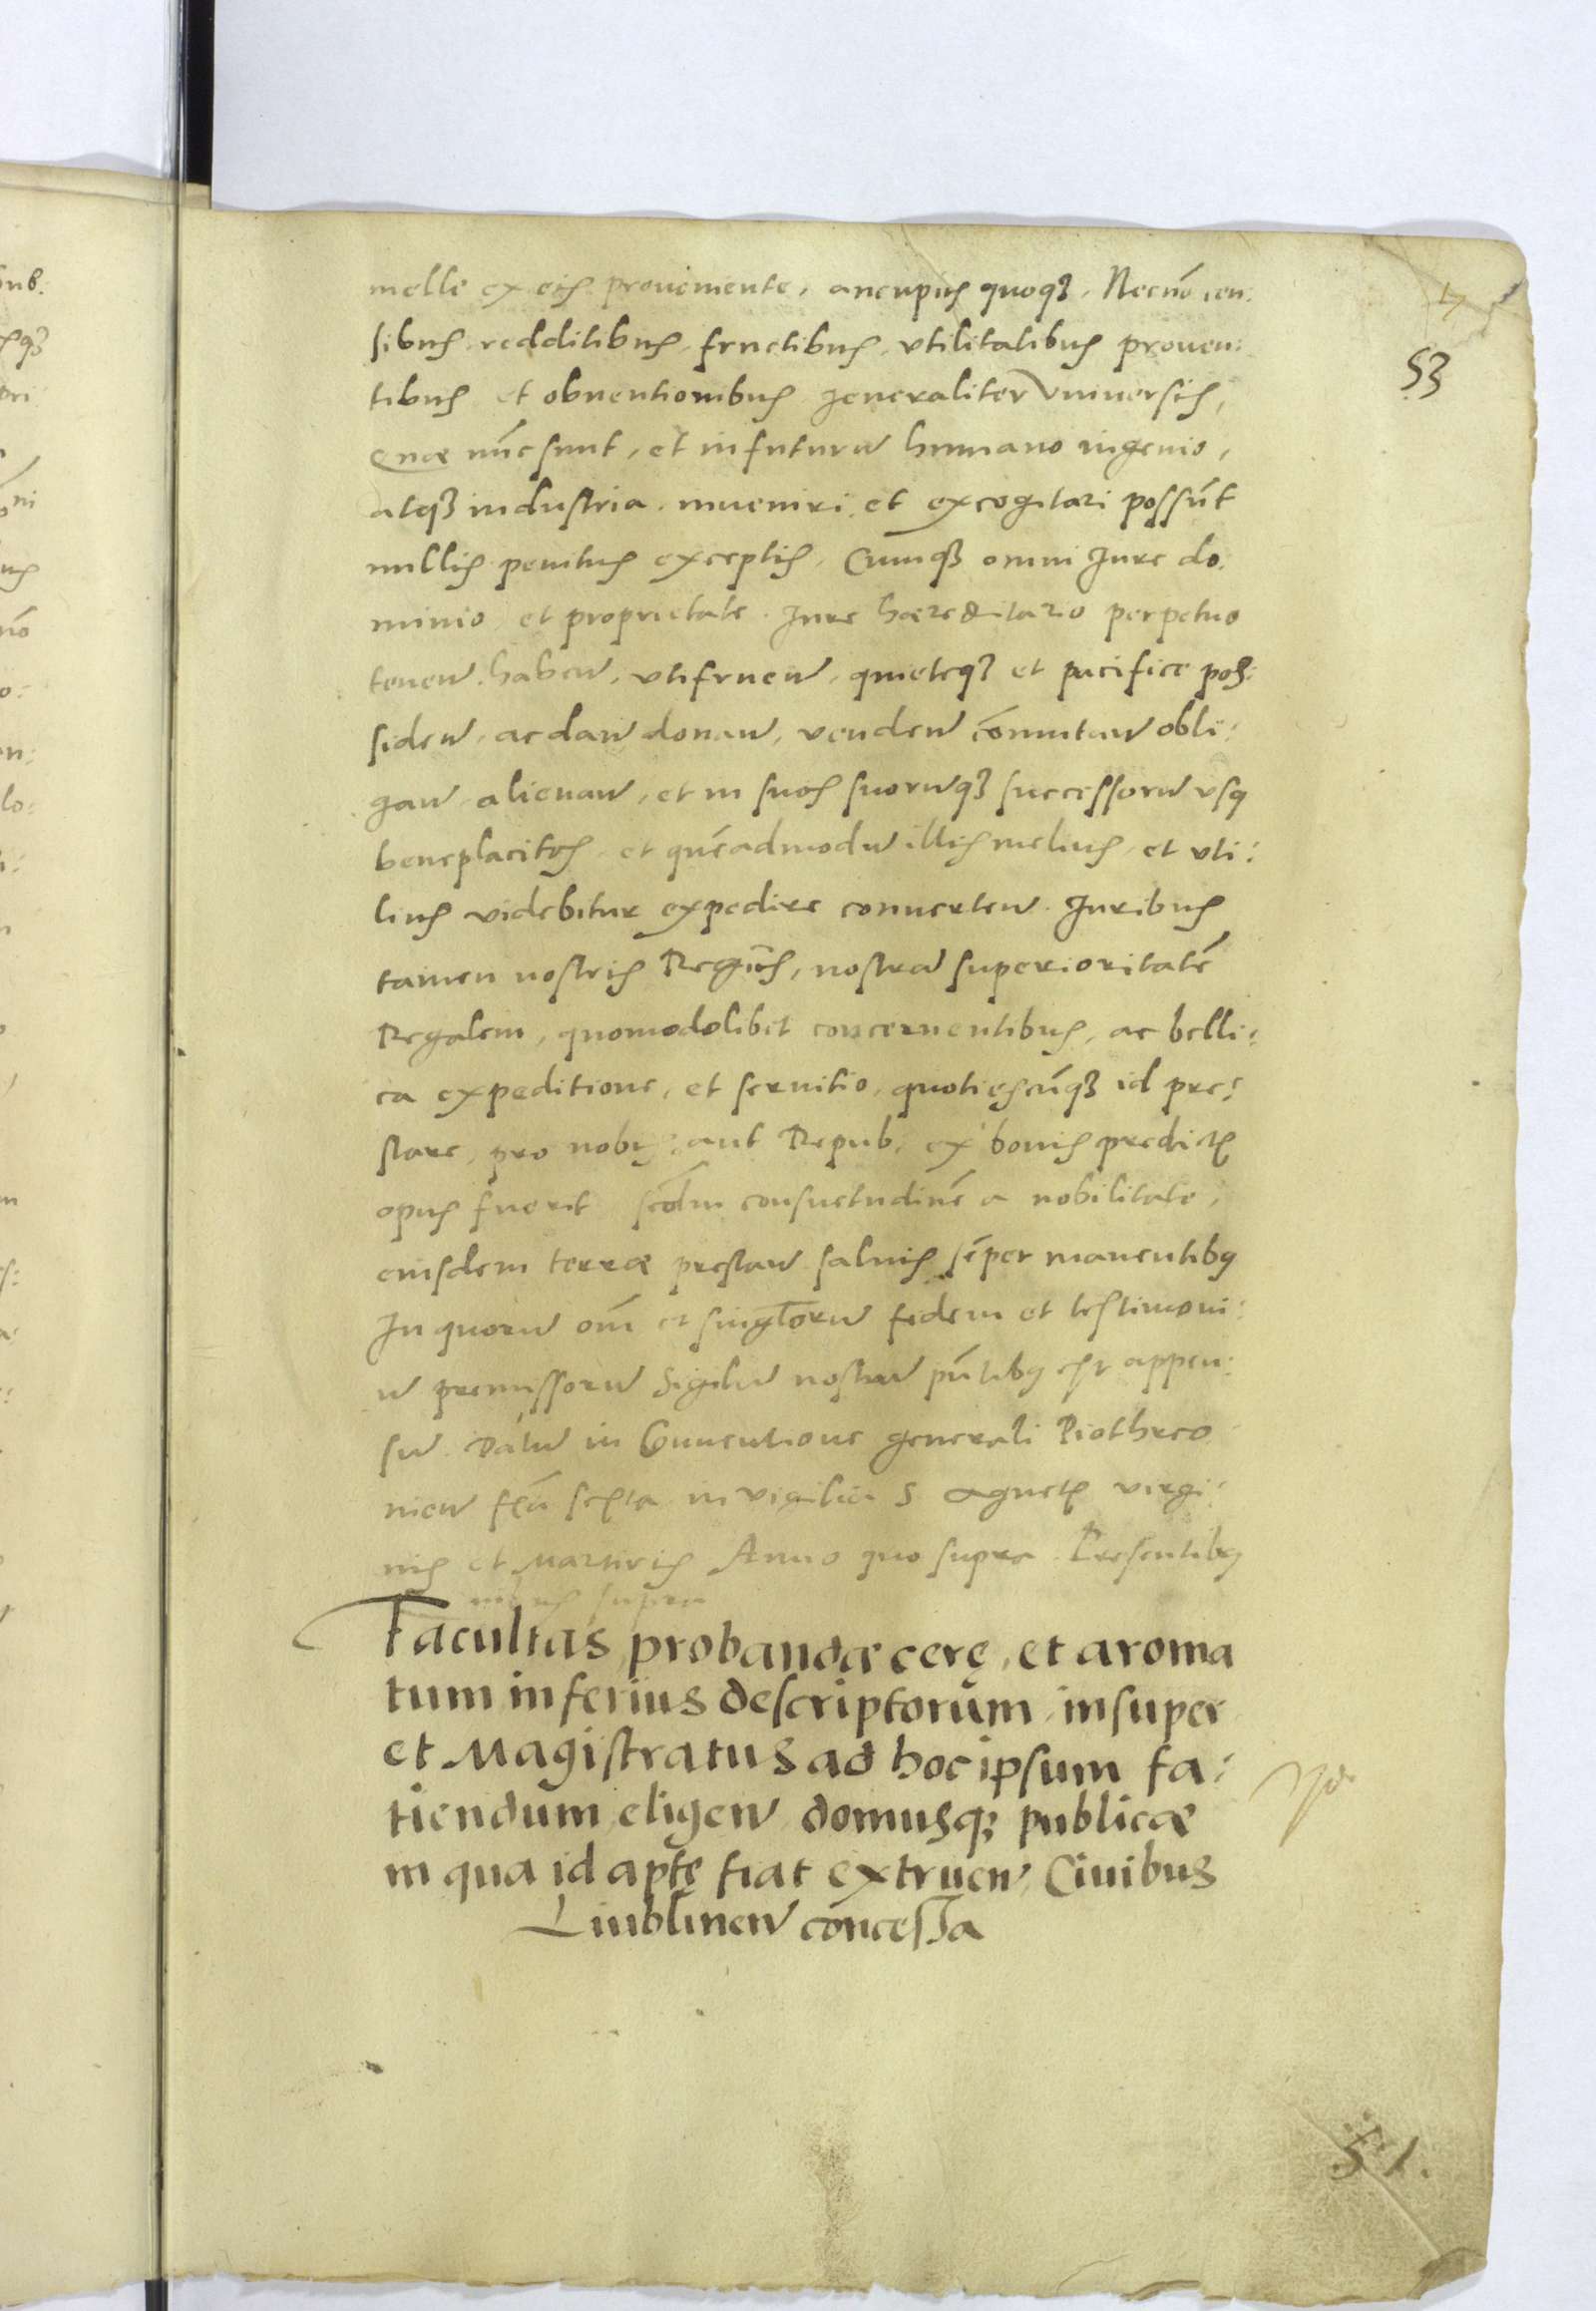 melle ex eis proveniente, aucupiis quoqȝ, Necnō cen:
sibus, redditibus, fructibus, vtilitatibus proven:
tibus et obuentionibus generaliter vniuersis,
Quæ nūc sunt, et in futurū humano ingenio,
atqȝ industria inueniri et excogitari possūt
nullis penitus exceptis, Cumqȝ omni Iure do:
minio et proprietate Iure hæreditario perpetuo
tenen̄ haben̄, vtifruen̄, quieteqȝ et pacifice pos:
siden̄, ac dan̄ donan̄, venden̄ cōmutan̄ obli:
gan̄ alienan̄, et in suos suorūqȝ successorū vsꝗ
beneplacitos, et quēadmodū illis melius, et vti:
lius videbitur expedire conuerten̄ Iuribus
tamen nostris Regiis, nostrā superioritatē
Regalem, quomodolibet concernentibus, ac belli:
ca expeditione, et seruitio, quotiescūqȝ id pre:
stare, pro nobis aut Repub. ex bonis predictis
opus fuerit secdm consuetudinē a nobilitate,
eiusdem terræ prestan̄ saluis sēper manentibꝯ
In quorū om̄ et singlorū fidem et testimoni:
ū premissorū Sigilū nostrū pn̄tibꝯ est appen:
sū Datū in Conuentione generali Piothrco
nien̄ feīa sexta in vigilia S. Agnetis virgi:
nis et Martiris Anno quo supra Presentibꝯ
supra
Facultas probandæ cerę, et aroma
tum inferius descriptorum, insuper
et Magistratus ad hoc ipsum fa:
tiendum eligen̄ domusqȝ publicæ
in qua id aptę fiat extruen̄, Ciuibus
Liublinen̄ concessa
53
51.